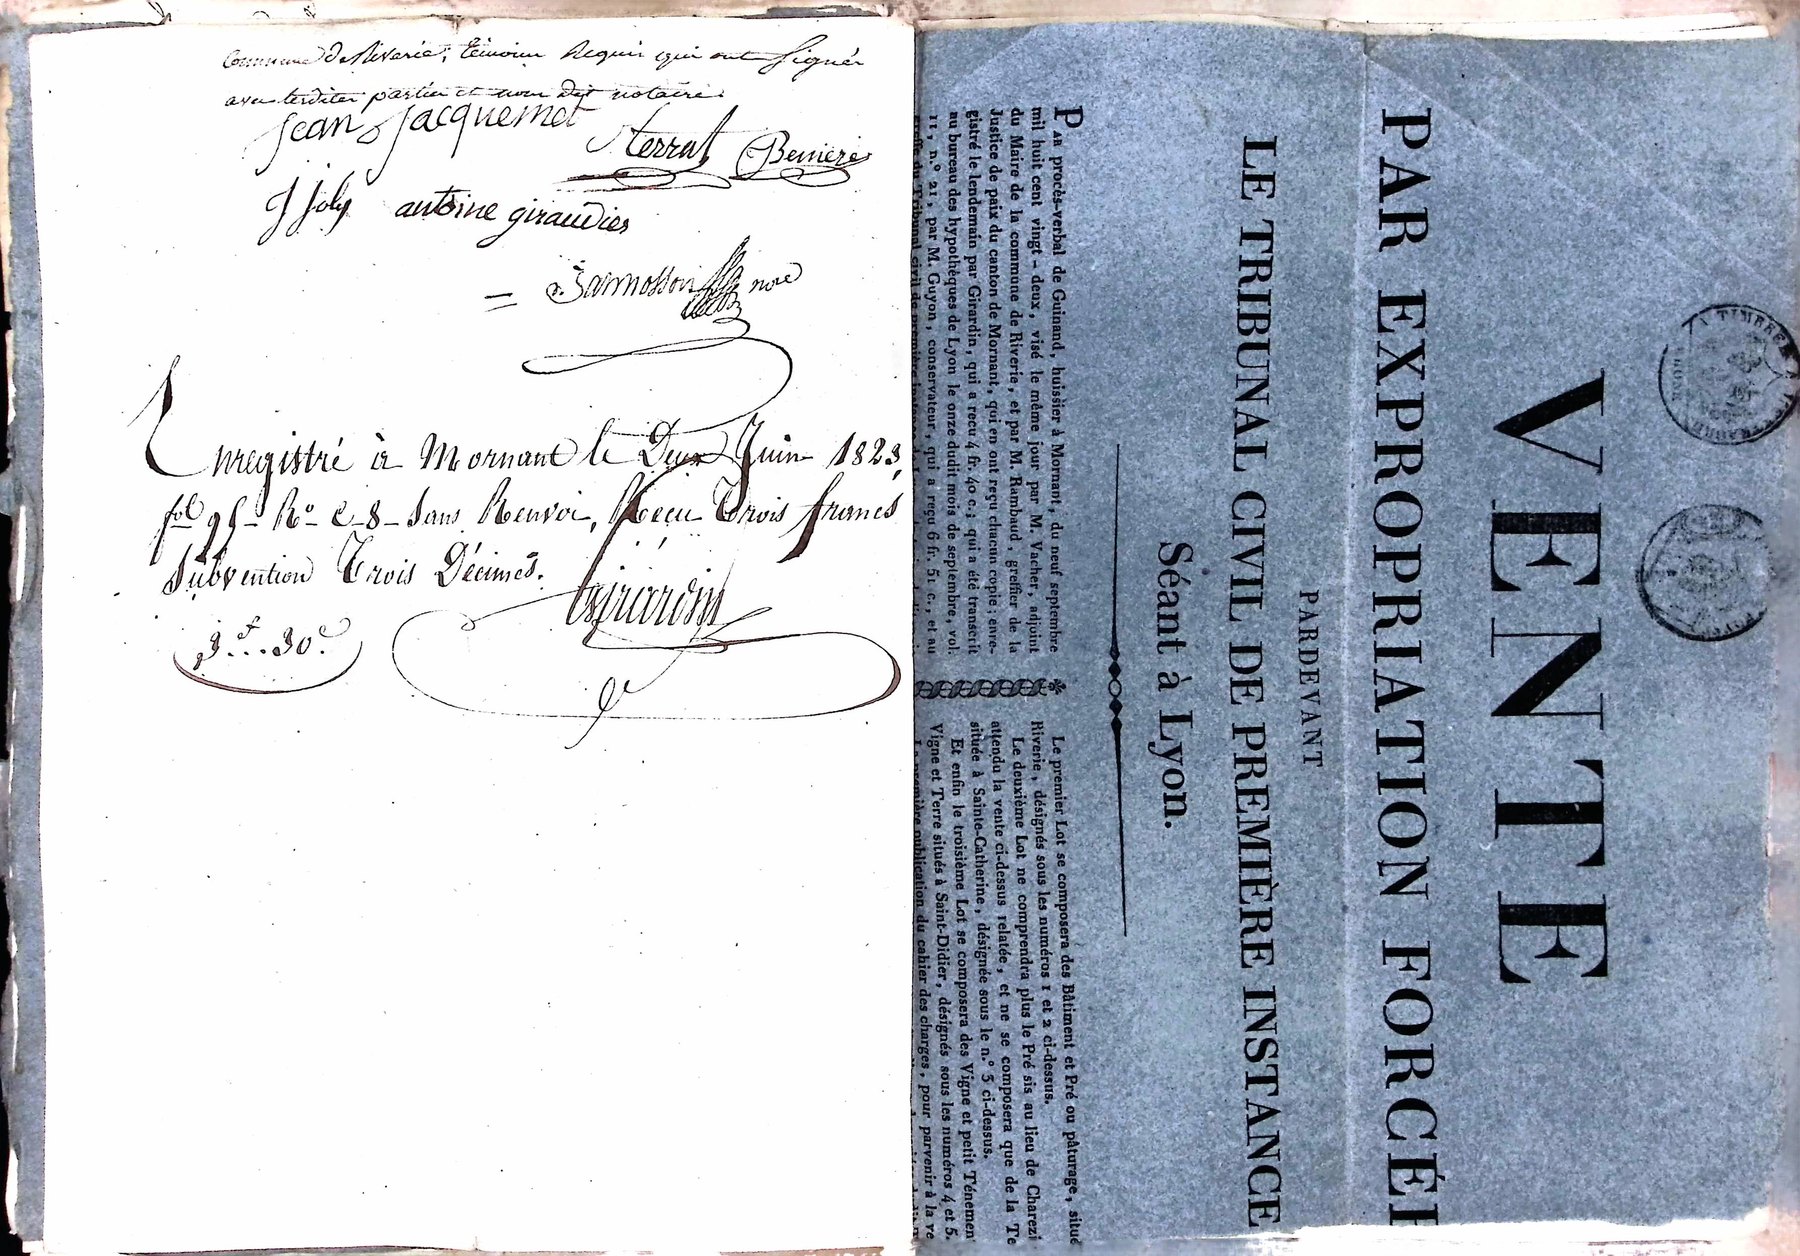 Commune de Riverie; témoins Requis qui ont Signés
avec lesdites parties et nous dit notaire.
jean jacquemet
terrat
Benière
J joly
antoine giraudies
nore
Enregistré à Mornant le Deux Juin 1823,
fol 95 Ro C 8 Sans Renvoi, Reçu Trois francs
Subvention Trois Décimes.
Girardin
3f..30c
VENTE
PAR EXPROPRIATION FORCÉE
PARDEVANT
LE TRIBUNAL CIVIL DE PREMIÈRE INSTANCE
Séant à Lyon.
PAR procès-verbal de Guinand, huissier à Mornant, du neuf septembre
mil huit cent vingt-deux, visé le même jour par M. Vacher, adjoint
du Maire de la commune de Riverie, et par M. Rambaud, greffier de la
Justice de paix du canton de Mornant, qui en ont reçu chacun copie; enre-
gistré le lendemain par Girardin, qui a reçu 4 fr. 40 c.; qui a été transcrit
au bureau des hypothèques de Lyon le onze dudit mois de septembre, vol.
11, n.º 21, par M. Guyon, conservateur, qui a reçu 6 fr. 51 c., et au
greffe du Tribunal civil de première
Le premier Lot se composera des Bâtiment et Pré ou pâturage, situé
Riverie, désignés sous les numéros 1 et 2 ci-dessus.
Le deuxième Lot ne comprendra plus le Pré sis au lieu de Charezi
attendu la vente ci-dessus relatée, et ne se composera que de la Te
située à Sainte-Catherine, désignée sous le n.º 3 ci-dessus.
Et enfin le troisième Lot se composera des Vigne et petit Ténemen
Vigne et Terre situés à Saint-Didier, désignés sous les numéros 4 et 5.
La première publication du cahier des charges, pour parvenir à la ve
TIMBRE A L'EXTRAORD
RHONE